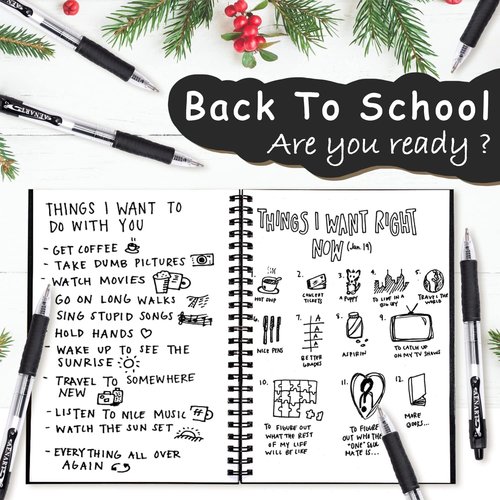 Back To School
Are you ready ?
THINGS I WANT TO
DO WITH YOU
- GET COFFEE
- TAKE DUMB PICTURES
- WATCH MOVIES
GO ON LONG WALKS
SING STUPID SONGS
HOLD HANDS
- WAKE UP TO SEE THE
SUNRISE
- TRAVEL TO SOMEWHERE
NEW
- LISTEN TO NICE MUSIC
- WATCH THE SUN SET
- EVERYTHING ALL OVER
AGAIN
THINGS I WANT RIGHT
NOW (Jan. 19)
1.
HOT SOUP
2.
CONCERT
TICKETS
3.
A PUPPY
4.
TO LIVE IN A
BIG CITY
5.
TRAVEL THE
WORLD
6.
NICE PENS
7.
A
A
A
A
BETTER
GRADES
8.
ASPIRIN
9.
TO CATCH UP
ON MY TV SHOWS
10.
TO FIGURE OUT
WHAT THE REST
OF MY LIFE
WILL BE LIKE
11.
TO FIGURE
OUT WHO THE
"ONE"
MATE IS...
12.
MORE
BOOKS...